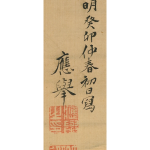 明癸卯仲春初日寫
應舉